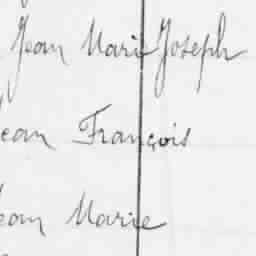 Jean Marie Joseph
Jean François
Jean Marie